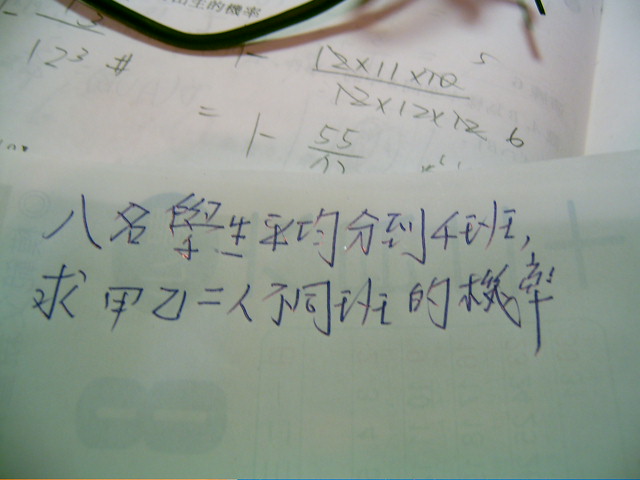 出生的機率
12³ #
1- 12×11×10 / 12×12×12
5
6
= 1- 55
八名學生平均分到4班,
求甲乙二人不同班的機率